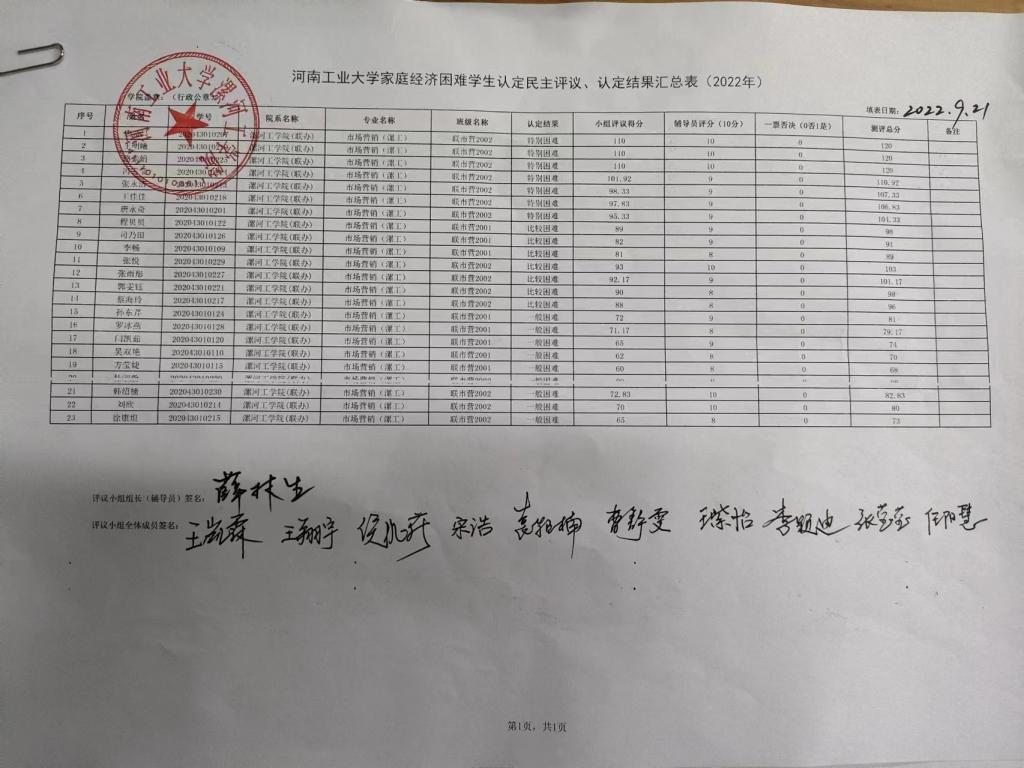 河南工业大学家庭经济困难学生认定民主评议、认定结果汇总表（2022年）
河南工业大学漯河工
（行政公章） 填表日期: 2022.9.21
序号 学号 院系名称 专业名称 班级名称 认定结果 小组评议得分 辅导员评分（10分） 一票否决（0否1是） 测评总分 备注
1 漯河工学院(联办) 市场营销（漯工） 联市营2002 特别困难 110 10 0 120
2 漯河工学院(联办) 市场营销（漯工） 联市营2002 特别困难 110 10 0 120
3 漯河工学院(联办) 市场营销（漯工） 联市营2002 特别困难 110 10 0 120
4 漯河工学院(联办) 市场营销（漯工） 联市营2002 特别困难 101.92 9 0 110.92
5 漯河工学院(联办) 市场营销（漯工） 联市营2002 特别困难 98.33 9 0 107.33
6 王佳佳 202043010218 漯河工学院(联办) 市场营销（漯工） 联市营2002 特别困难 97.83 9 0 106.83
7 唐永奇 202043010201 漯河工学院(联办) 市场营销（漯工） 联市营2002 特别困难 95.33 9 0 104.33
8 程贝贝 202043010122 漯河工学院(联办) 市场营销（漯工） 联市营2001 比较困难 89 9 0 98
9 司乃田 202043010126 漯河工学院(联办) 市场营销（漯工） 联市营2001 比较困难 82 9 0 91
10 李畅 202043010109 漯河工学院(联办) 市场营销（漯工） 联市营2001 比较困难 81 8 0 89
11 张悦 202043010229 漯河工学院(联办) 市场营销（漯工） 联市营2002 比较困难 93 10 0 103
12 张雨彤 202043010227 漯河工学院(联办) 市场营销（漯工） 联市营2002 比较困难 92.17 9 0 101.17
13 郭雯钰 202043010221 漯河工学院(联办) 市场营销（漯工） 联市营2002 比较困难 90 8 0 98
14 蔡海玲 202043010217 漯河工学院(联办) 市场营销（漯工） 联市营2002 比较困难 88 8 0 96
15 孙东芹 202043010124 漯河工学院(联办) 市场营销（漯工） 联市营2001 一般困难 72 9 0 81
16 罗冰燕 202043010128 漯河工学院(联办) 市场营销（漯工） 联市营2001 一般困难 71.17 8 0 79.17
17 闫凯茹 202043010120 漯河工学院(联办) 市场营销（漯工） 联市营2001 一般困难 65 9 0 74
18 吴双艳 202043010110 漯河工学院(联办) 市场营销（漯工） 联市营2001 一般困难 62 8 0 70
19 方莹婕 202043010115 漯河工学院(联办) 市场营销（漯工） 联市营2001 一般困难 60 8 0 68
21 202043010230 漯河工学院(联办) 市场营销（漯工） 联市营2002 一般困难 72.83 10 0 82.83
22 刘欣 202043010214 漯河工学院(联办) 市场营销（漯工） 联市营2002 一般困难 70 10 0 80
23 徐康坦 202043010215 漯河工学院(联办) 市场营销（漯工） 联市营2002 一般困难 65 8 0 73
评议小组组长（辅导员）签名: 薛林生
评议小组全体成员签名: 王翔宇 宋浩 李颖迪
第1页, 共1页